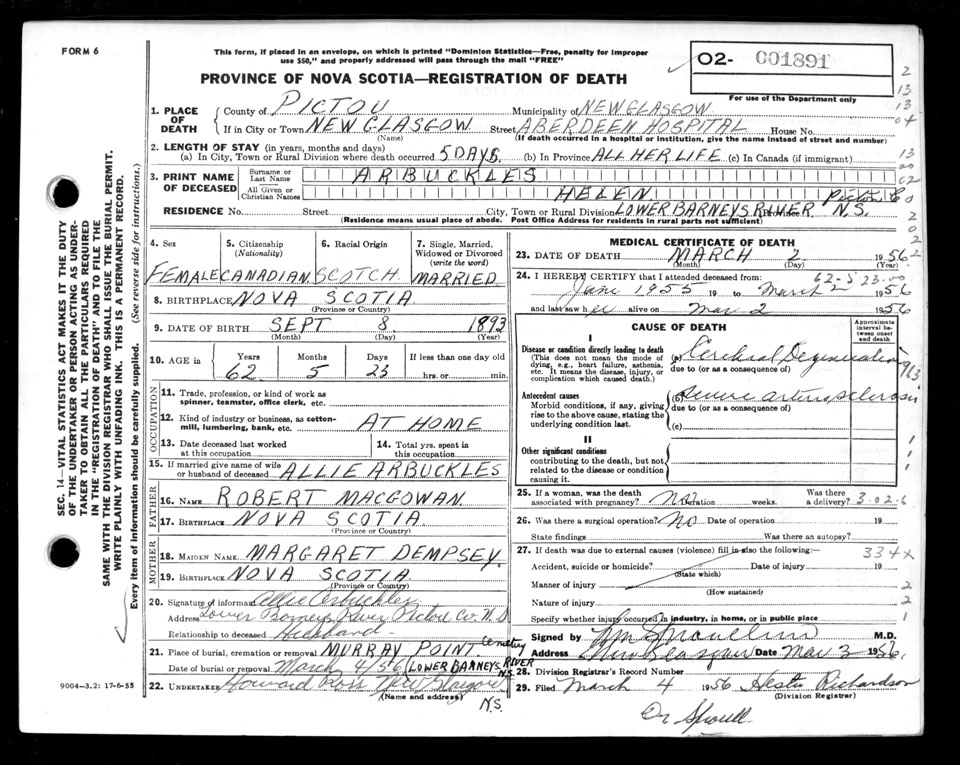 FORM 6
This form, if placed in an envelope, on which is printed "Dominion Statistics—Free, penalty for improper
use $50," and properly addressed will pass through the mail "FREE"
PROVINCE OF NOVA SCOTIA—REGISTRATION OF DEATH
02- 001891
For use of the Department only
SEC. 14—VITAL STATISTICS ACT MAKES IT THE DUTY
OF THE UNDERTAKER OR PERSON ACTING AS UNDER-
TAKER TO OBTAIN ALL THE PARTICULARS REQUIRED
IN THE "REGISTRATION OF DEATH" AND TO FILE THE
SAME WITH THE DIVISION REGISTRAR WHO SHALL ISSUE THE BURIAL PERMIT.
WRITE PLAINLY WITH UNFADING INK. THIS IS A PERMANENT RECORD.
Every item of information should be carefully supplied. (See reverse side for instructions.)
1. PLACE OF DEATH
County of PICTOU Municipality of NEW GLASGOW
If in City or Town NEW GLASGOW Street ABERDEEN HOSPITAL House No.
(Name) (If death occurred in a hospital or institution, give the name instead of street and number)
2. LENGTH OF STAY (in years, months and days)
(a) In City, Town or Rural Division where death occurred 5 DAYS. (b) In Province ALL HER LIFE (c) In Canada (if immigrant)
3. PRINT NAME OF DECEASED
Surname or Last Name ARBUCKLES
All Given or Christian Names HELEN
Pictou Co
RESIDENCE No. Street City, Town or Rural Division LOWER BARNEYS RIVER Province N.S.
(Residence means usual place of abode. Post Office Address for residents in rural parts not sufficient)
4. Sex
FEMALE
5. Citizenship (Nationality)
CANADIAN
6. Racial Origin
SCOTCH
7. Single, Married, Widowed or Divorced (write the word)
MARRIED
8. BIRTHPLACE NOVA SCOTIA
(Province or Country)
9. DATE OF BIRTH SEPT 8 1893
(Month) (Day) (Year)
10. AGE in Years Months Days If less than one day old
62 5 23 hrs. or min.
OCCUPATION
11. Trade, profession, or kind of work as
spinner, teamster, office clerk, etc.
12. Kind of industry or business, as cotton-
mill, lumbering, bank, etc. AT HOME
13. Date deceased last worked
at this occupation
14. Total yrs. spent in
this occupation
15. If married give name of wife
or husband of deceased ALLIE ARBUCKLES
FATHER
16. NAME ROBERT MACGOWAN
17. BIRTHPLACE NOVA SCOTIA.
(Province or Country)
MOTHER
18. MAIDEN NAME MARGARET DEMPSEY.
19. BIRTHPLACE NOVA SCOTIA
(Province or Country)
20. Signature of informant Allie Arbuckles
Address Lower Barneys River Pictou Co. N.S
Relationship to deceased Husband
21. Place of burial, cremation or removal MURRAY POINT Cemetery
Date of burial or removal March 4/56 LOWER BARNEYS RIVER N.S.
22. UNDERTAKER Howard Ross New Glasgow
(Name and address) N.S.
9004-3.2: 17-6-55
MEDICAL CERTIFICATE OF DEATH
23. DATE OF DEATH MARCH 2 1956
(Month) (Day) (Year)
24. I HEREBY CERTIFY that I attended deceased from: 62-5 23.00
June 1955 19 to March 2 1956
and last saw her alive on Mar 2 1956
CAUSE OF DEATH
Approximate interval between onset and death
I
Disease or condition directly leading to death
(This does not mean the mode of
dying, e.g., heart failure, asthenia,
etc. It means the disease, injury, or
complication which caused death.)
(a) Cerebral Degeneration
due to (or as a consequence of)
Antecedent causes
Morbid conditions, if any, giving
rise to the above cause, stating the
underlying condition last.
(b) severe arteriosclerosis
due to (or as a consequence of)
(c)
II
Other significant conditions
contributing to the death, but not
related to the disease or condition
causing it.
25. If a woman, was the death
associated with pregnancy? no Duration weeks. Was there
a delivery? 3-02-6
26. Was there a surgical operation? no Date of operation 19
State findings Was there an autopsy?
27. If death was due to external causes (violence) fill in also the following:— 334x
Accident, suicide or homicide? Date of injury 19
(State which)
Manner of injury
(How sustained)
Nature of injury
Specify whether injury occurred in industry, in home, or in public place
Signed by M.D.
Address New Glasgow Date Mar 3 1956
28. Division Registrar's Record Number
29. Filed March 4 1956 Hester Richardson
(Division Registrar)